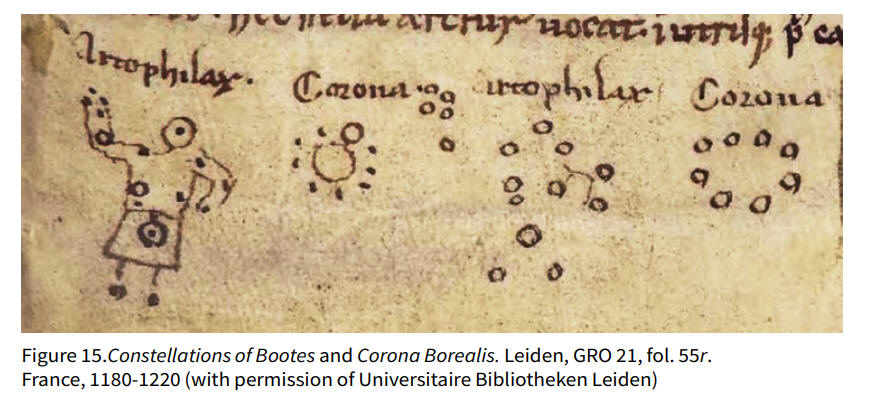 stella arctur uocat.
Artophilax. Corona artophilax Corona
Figure 15.Constellations of Bootes and Corona Borealis. Leiden, GRO 21, fol. 55r.
France, 1180-1220 (with permission of Universitaire Bibliotheken Leiden)